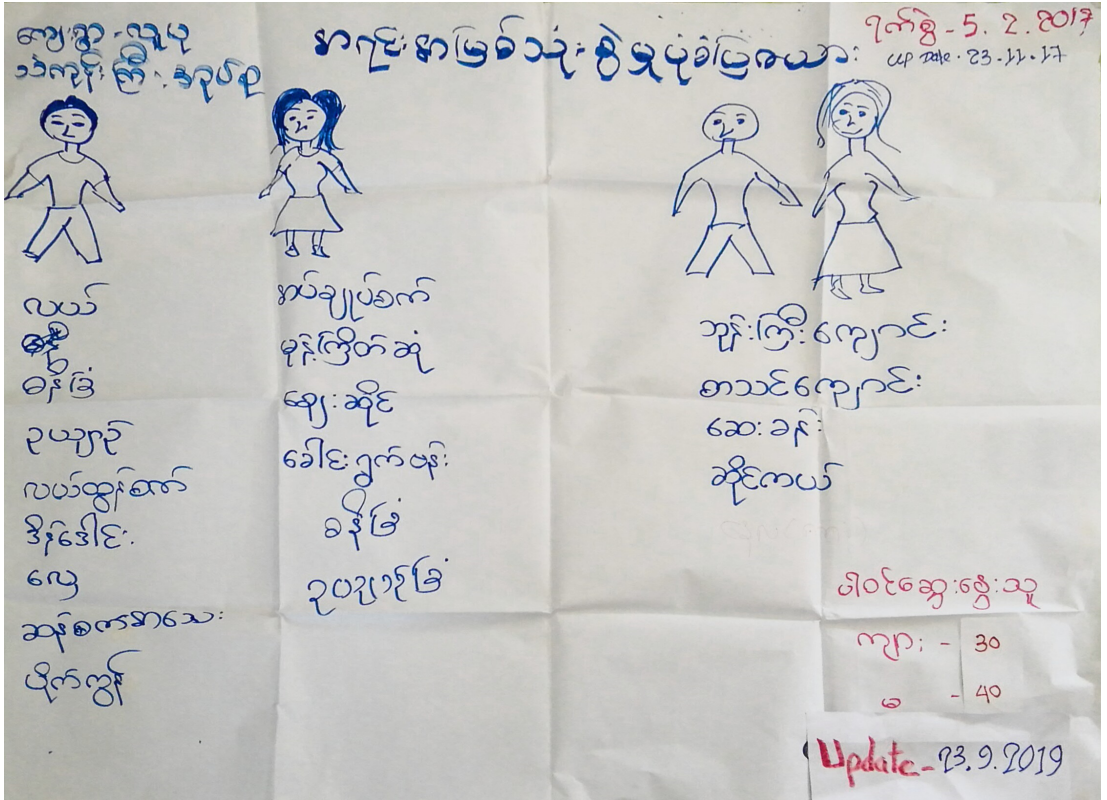 ကျေးရွာ - လူပု
သံကုန်းကြီး အုပ်စု
အရင်းအမြစ်သုံးစွဲမှုပုံစံပြဇယား
ရက်စွဲ - 5. 2. 2017
up Date - 23-11-17
လယ်
ဓနိခြံ
ဥယျာဉ်
လယ်ထွန်စက်
ဒိန်ဒေါင်း
လှေ
ဆန်စက်အသေး
ပိုက်ကွန်
အပ်ချုပ်စက်
မုန့်ကြိတ်ဆုံ
ဈေးဆိုင်
ခေါင်းရွက်ဗန်း
ဓနိခြံ
ဥယျာဉ်ခြံ
ဘုန်းကြီးကျောင်း
စာသင်ကျောင်း
ဆေးခန်း
ဆိုင်ကယ်
ပါဝင်ဆွေးနွေးသူ
ကျား - 30
မ - 40
Update - 23.9.2019